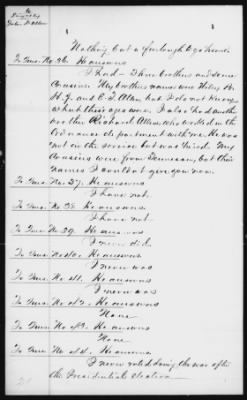 Nothing but a furlough to go home.
To Ques. No. 36. He answers
I had - Three brothers and some
Cousins. My brothers names are Wiley B.
H. J. and C. T. Allen but I do not know
what their ages were. I also had another
brother Richard Allen who worked in the
Ordnance department with me. He was
not in the service but was hired. My
Cousins were from Tennessee, but their
names I could not give you now.
To Ques. No. 37. He answers
I have not.
To Ques. No. 38. He answers
I have not.
To Ques. No. 39. He answers
I never did.
To Ques. No. 40. He answers
I never was
To Ques. No. 41. He answers
I never was
To Ques. No. 42. He answers
None
To Ques. No. 43. He answers
None
To Ques. No. 44. He answers
I never voted during the war after
the Presidential election